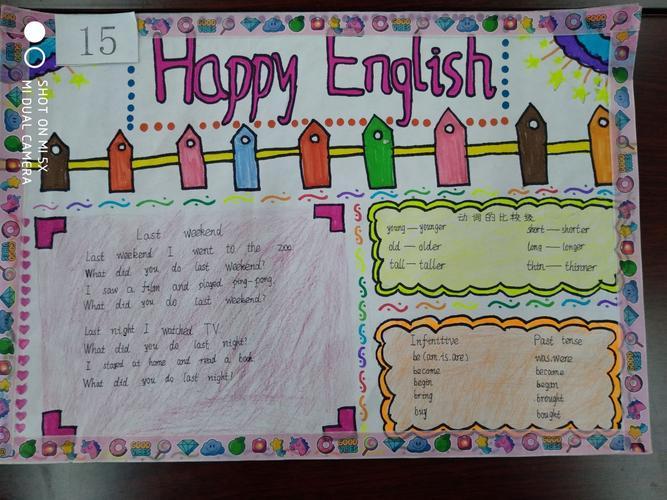 15
Happy English
Last weekend
Last weekend I went to the zoo.
What did you do last weekend?
I saw a film and played ping-pong.
What did you do last weekend?
Last night I watched TV.
What did you do last night?
I stayed at home and read a book.
What did you do last night?
动词的比较级
young—younger short—shorter
old—older long—longer
tall—taller thin—thinner
Infinitive Past tense
be (am.is.are) was.were
become became
begin began
bring brought
buy bought
SHOT ON MI 5X
MI DUAL CAMERA
GOOD VIBES